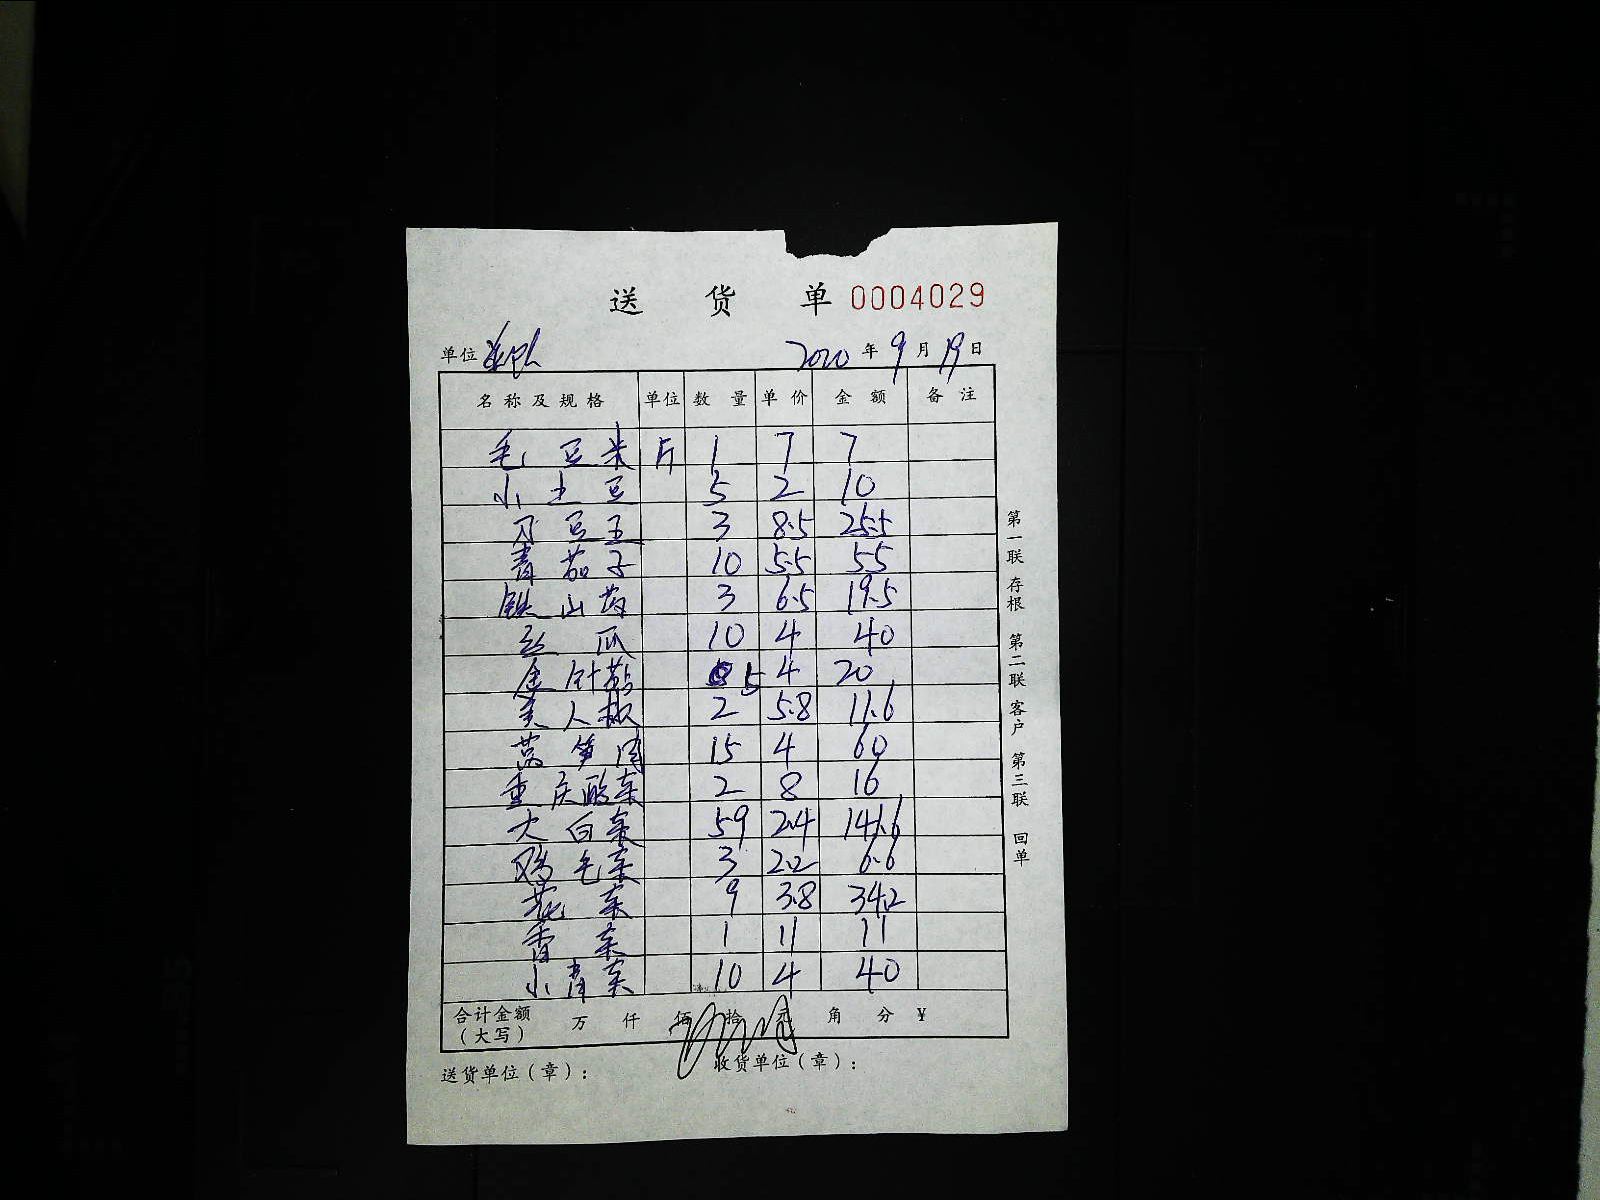 送货单 0004029
单位 2020年9月19日
名称及规格 单位 数量 单价 金额 备注
毛豆米 斤 1 7 7
小土豆 5 2 10
刀豆王 3 8.5 25.5
青茄子 10 5.5 55
铁山药 3 6.5 19.5
丝瓜 10 4 40
金针菇 5 4 20
美人椒 2 5.8 11.6
莴笋肉 15 4 60
重庆酸菜 2 8 16
大白菜 59 2.4 141.6
鸡毛菜 3 2.2 6.6
花菜 9 3.8 34.2
香菜 1 11 11
小青菜 10 4 40
合计金额（大写） 万 仟 佰 拾 元 角 分 ¥
送货单位（章）： 收货单位（章）：
第一联 存根 第二联 客户 第三联 回单